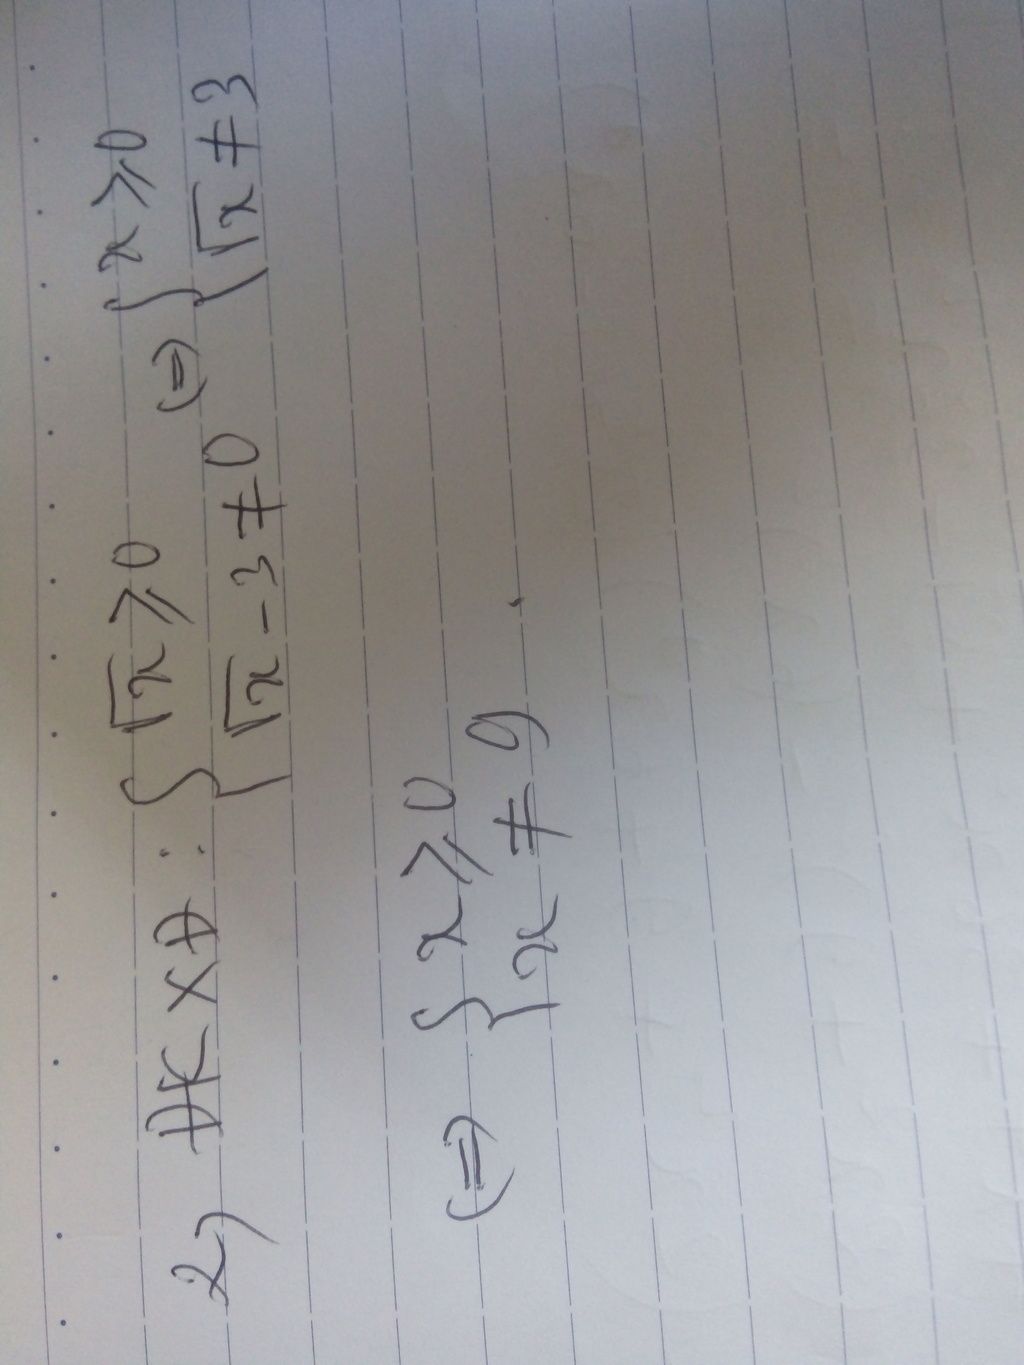 2, ĐKXĐ : { √x ≥ 0 (=) { x ≥ 0
√x - 3 ≠ 0 √x ≠ 3
(=) { x ≥ 0
x ≠ 9 .